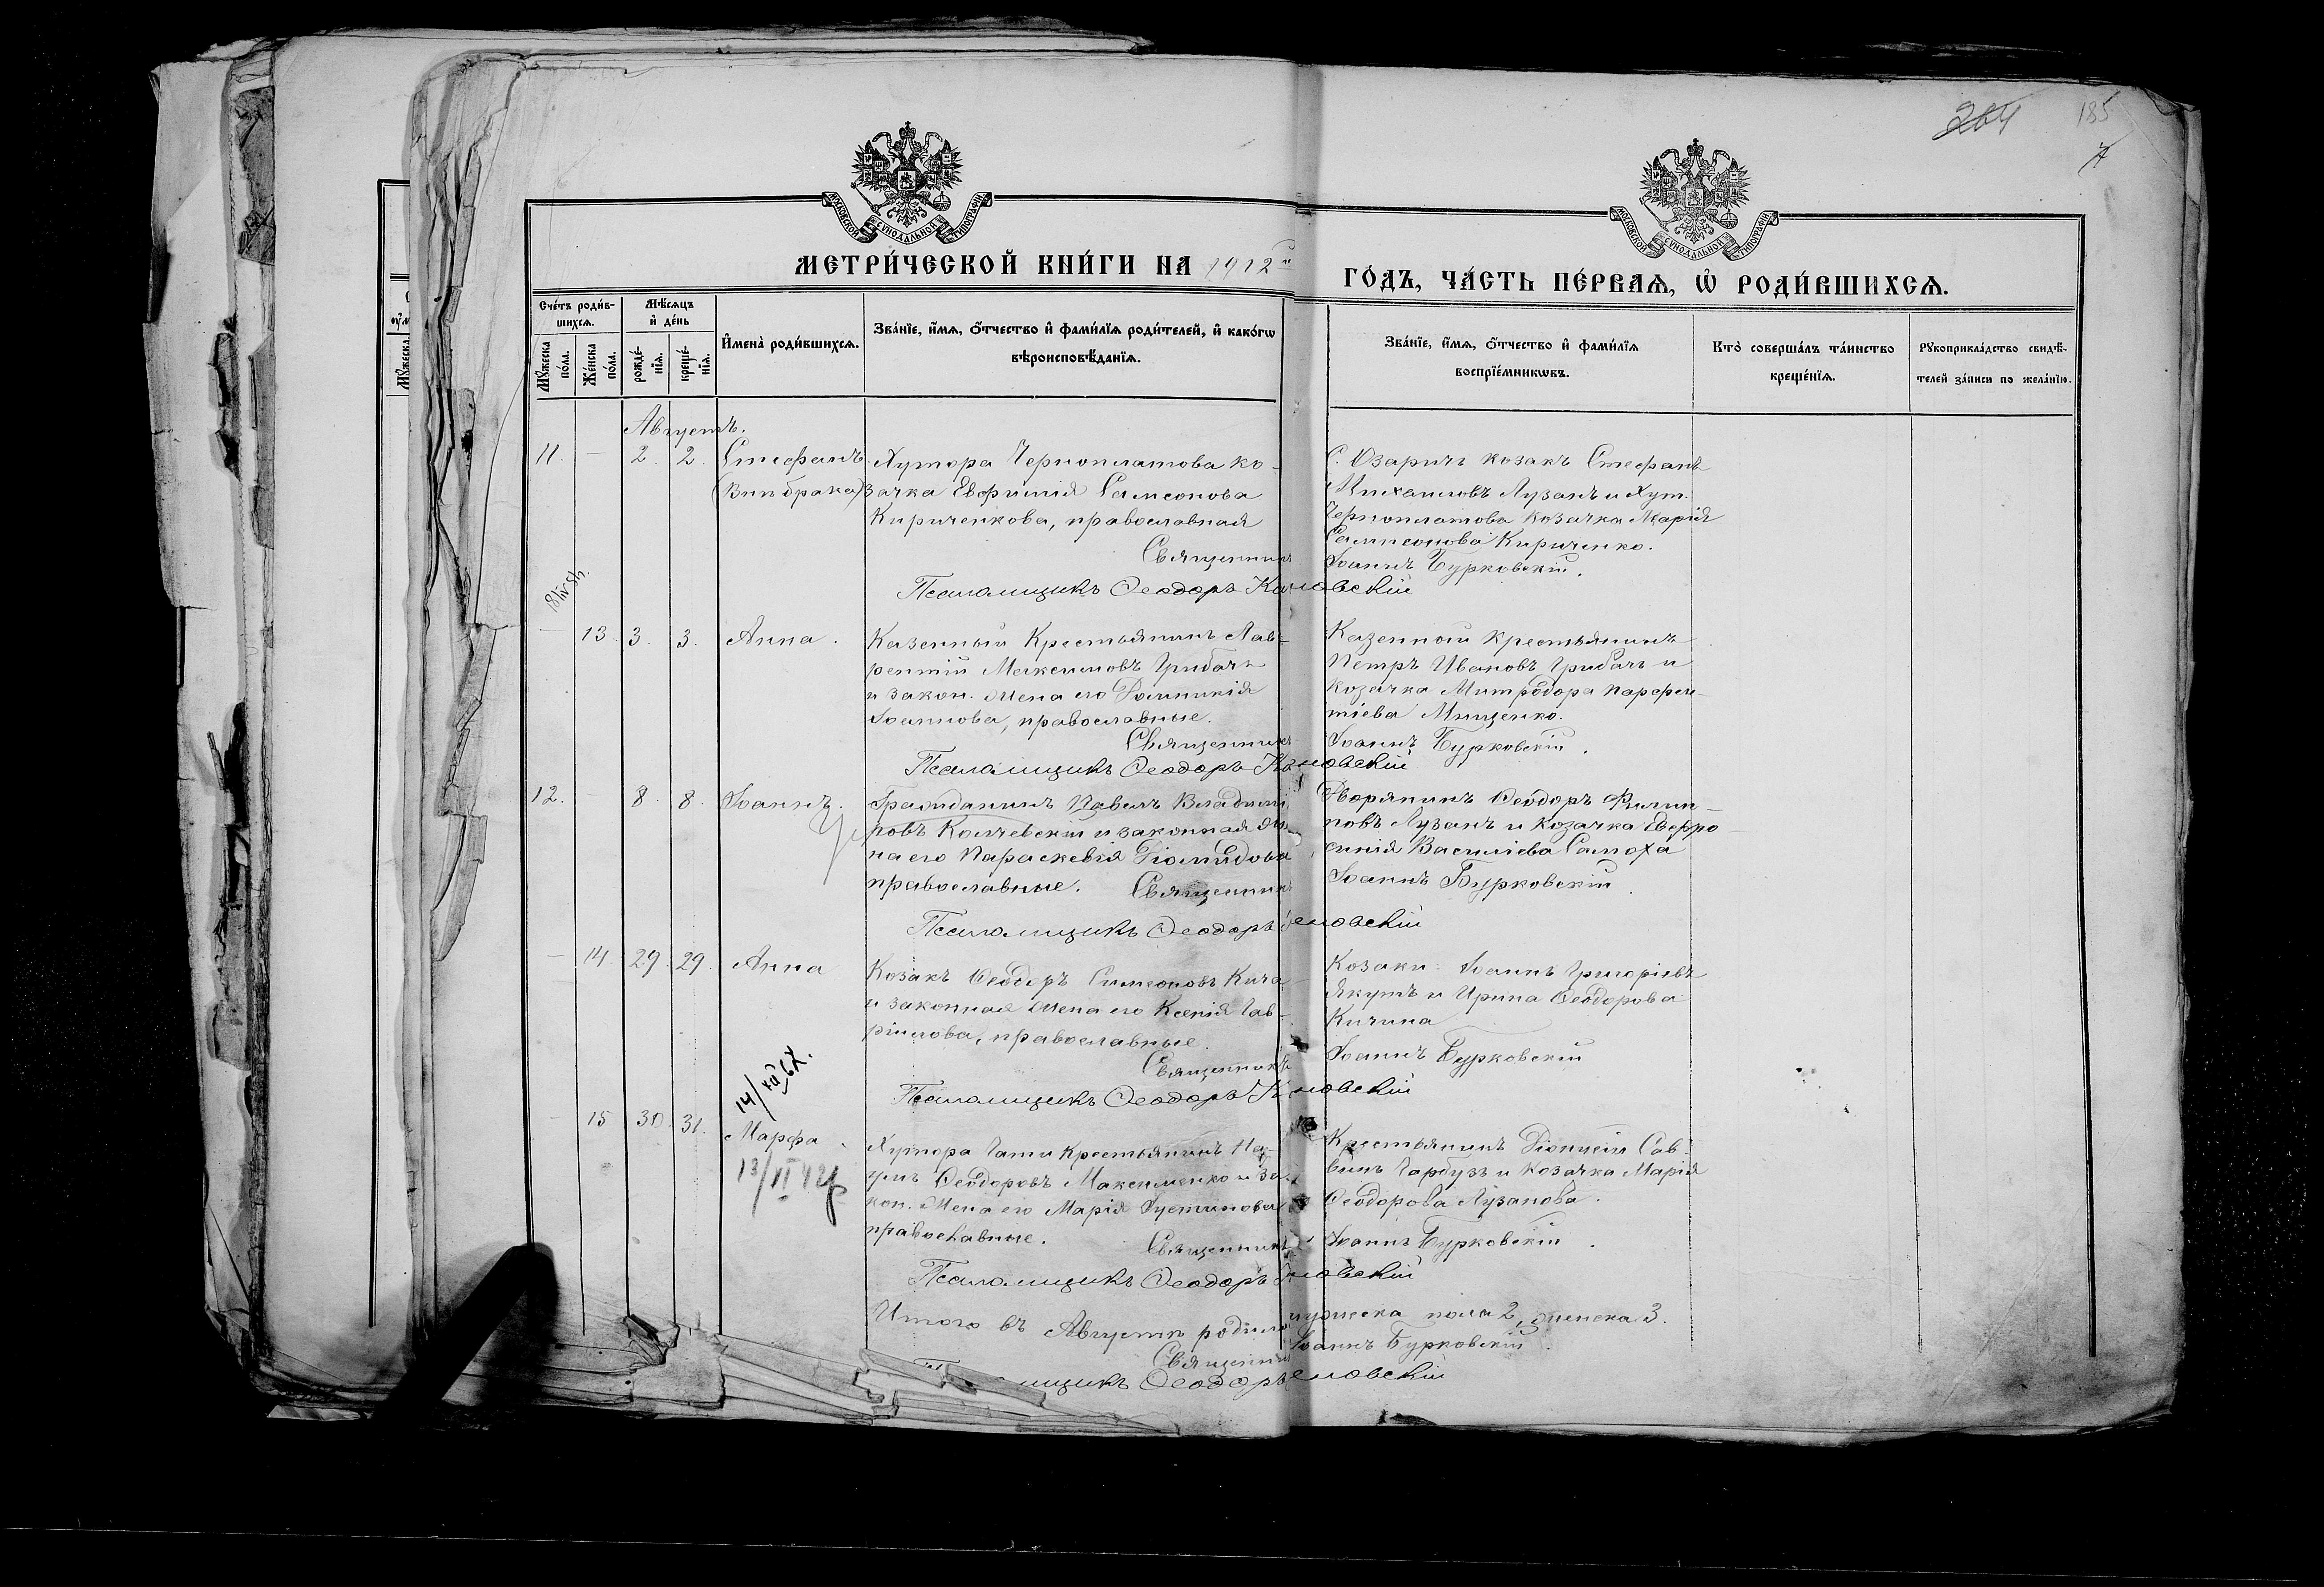 264
185
7
МОСКОВСКОЙ СѴНОДАЛЬНОЙ ТИПОГРАФІИ
МОСКОВСКОЙ СѴНОДАЛЬНОЙ ТИПОГРАФІИ
МЕТРИ́ЧЕСКОЙ КНИ́ГИ НА 1912й
ГО́ДЪ, ЧА́СТЬ ПЕ́РВАѦ, Ѡ҆ РОДИ́ВШИХСѦ.
Сче́тъ роди́в-
шихсѧ.
Мꙋ́жеска
по́ла.
Же́нска
по́ла.
Мѣ́сѧцъ
и҆ де́нь
рожде́-
нїѧ.
креще́-
нїѧ.
И҆мена̀ роди́вшихсѧ.
Зва́нїе, и҆́мѧ, ѻ҆́тчество и҆ фами́лїѧ роди́телей, и҆ како́гѡ
вѣроисповѣ́данїѧ.
Зва́нїе, и҆́мѧ, ѻ҆́тчество и҆ фами́лїѧ
воспрїе́мникѡвъ.
Кто̀ соверша́лъ та́инство
креще́нїѧ.
Рꙋкоприкла́дство свидѣ́-
телей за́писи по жела́нїю.
Августъ.
11. — 2. 2. Стефанъ
(Внѣ брака)
Хутора Черноплатова ко-
зачка Евфимія Самсонова
Кириченкова, православная
С. Озаричъ козакъ Стефанъ
Михаиловъ Лузанъ и Хут.
Черноплатова козачка Марія
Сампсонова Кириченко.
Священникъ Іоаннъ Бурковскій.
Псаломщикъ Ѳеодоръ
— 13. 3. 3. Анна.
Казенный Крестьянинъ Лав-
рентій Максимовъ Грибачъ
и закон. жена его Домникія
Іоаннова, православные.
Казенный крестьянинъ
Петръ Ивановъ Грибачъ и
козачка Митродора Парфен-
тіева Мищенко.
Священникъ Іоаннъ Бурковскій.
Псаломщикъ Ѳеодоръ
12. — 8. 8. Іоаннъ.
Гражданинъ Павелъ Владимі
ровъ Колчевскій и законная же
на его Параскевія Діомидова
православные.
Дворянинъ Ѳеодоръ Филип-
повъ Лузанъ и козачка Евфро
синія Василіева Самоха
Священникъ Іоаннъ Бурковскій.
Псаломщикъ Ѳеодоръ
— 14. 29. 29. Анна
Козакъ Ѳеодоръ Симеоновъ Кича
и законная жена его Ксенія Гав-
ріилова, православные.
Козаки: Іоаннъ Григоріевъ
Якутъ и Ирина Ѳеодорова
Кичина
Священникъ Іоаннъ Бурковскій
Псаломщикъ Ѳеодоръ
— 15 30. 31. Марфа.
13/VI 42
Хутора Гати крестьянинъ На-
умъ Ѳеодоровъ Максименко и за-
кон. жена его Марія Іустинова
православные.
Крестьянинъ Діонисій Сав-
винъ Гарбузъ и козачка Марія
Ѳеодорова Лузанова.
Священникъ Іоаннъ Бурковскій.
Псаломщикъ Ѳеодоръ
Итого въ Августѣ родилось мужеска пола 2, женска 3.
Священникъ Іоаннъ Бурковскій.
Ѳеодоръ